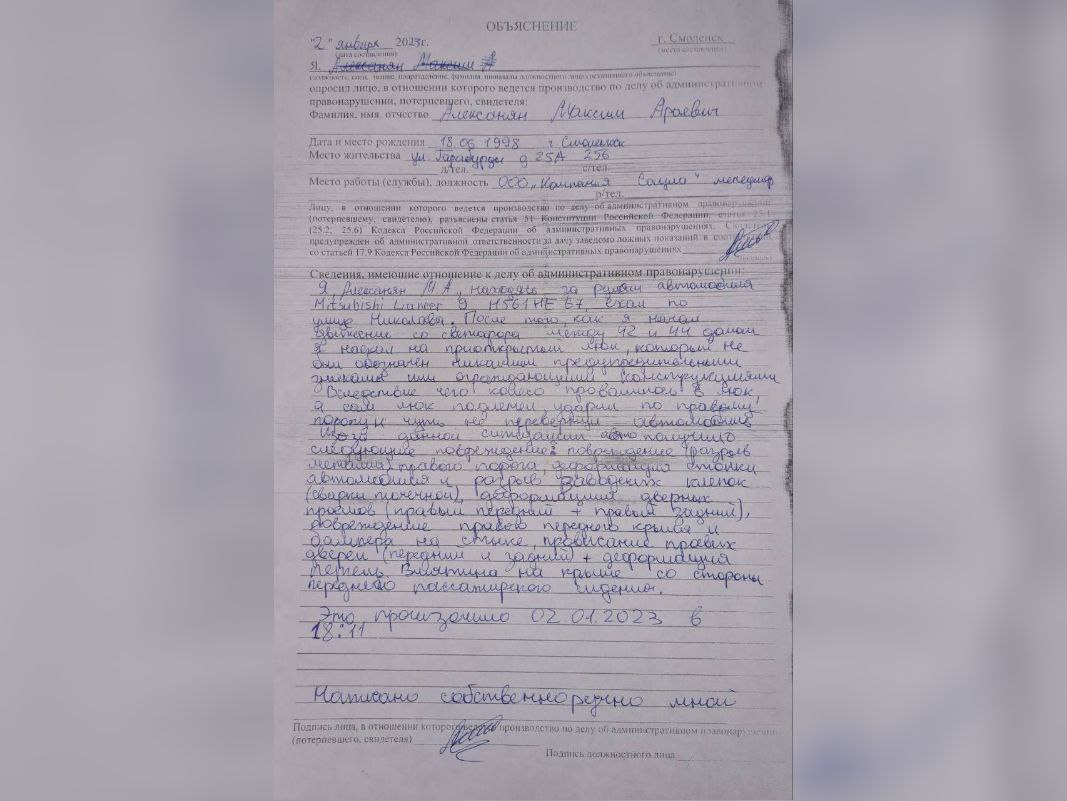 ОБЪЯСНЕНИЕ
"2" января 2023г. г. Смоленск
(дата составления) (место составления)
Я, Алексанян Максим А
(должность, класс, звание, подразделение, фамилия, инициалы должностного лица составившего объяснение)
опросил лицо, в отношении которого ведется производство по делу об административном
правонарушении, потерпевшего, свидетеля:
Фамилия, имя, отчество Алексанян Максим Араевич
Дата и место рождения 18.06 1998 г Смоленск
Место жительства ул. д 25А 256
д/тел. с/тел.
Место работы (службы), должность ООО "Компания менеджер
р/тел.
Лицу, в отношении которого ведется производство по делу об административном правонарушении
(потерпевшему, свидетелю), разъяснены статья 51 Конституции Российской Федерации, статья 25.1
(25.2, 25.6) Кодекса Российской Федерации об административных правонарушениях.
предупрежден об административной ответственности за дачу заведомо ложных показаний в
со статьей 17.9 Кодекса Российской Федерации об административных правонарушениях
Сведения, имеющие отношение к делу об административном правонарушении:
Я Алексанян М А, находясь за рулем автомобиля
Mitsubishi Lancer 9 Н561НЕ 67, ехал по
улице Николаева. После того, как я начал
движение со светофора между 42 и 44 домом
Я наехал на приоткрытый люк, который не
был обозначен никакими предупредительными
знаками или ограждающими конструкциями
Вследствие чего колесо провалилось в люк,
а сам люк подлетел, ударил по правому
порогу и чуть не перевернул автомобиль
Из за данной ситуации авто получило
следующие повреждение: повреждение (разрыв
металла) правого порога, деформация стойки
автомобиля и разрыв заводских клепок
(сварки точечной), деформация дверных
проемов (правый передний + правый задний),
повреждение правого переднего крыла и
бампера на стыке, провисание правых
дверей (передний и задний) + деформация
петель. Вмятина на крыше со стороны
переднего пассажирского сидения.
Это произошло 02.01.2023 в
18:11
Написано собственноручно мной
Подпись лица, в отношении которого ведется производство по делу об административном правонарушении
(потерпевшего, свидетеля)
Подпись должностного лица